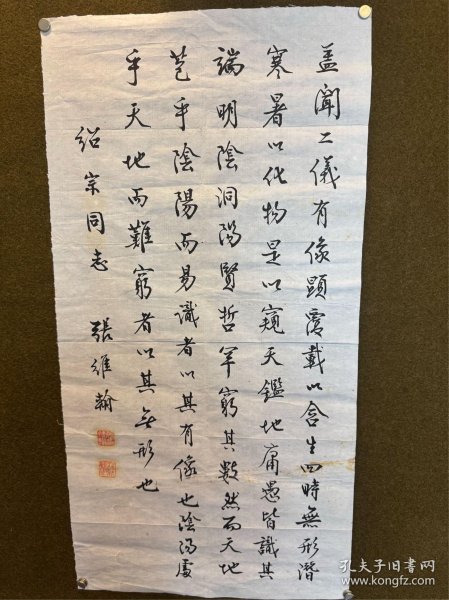 盖闻二儀有像顕覆載以含生四時無形潛
寒暑以化物是以窺天鑑地庸愚皆識其
端明陰洞陽賢哲罕窮其數然而天地
苞乎陰陽而易識者以其有像也陰陽處
乎天地而難窮者以其無形也
绍宗同志
張維翰
孔夫子旧书网
www.kongfz.com